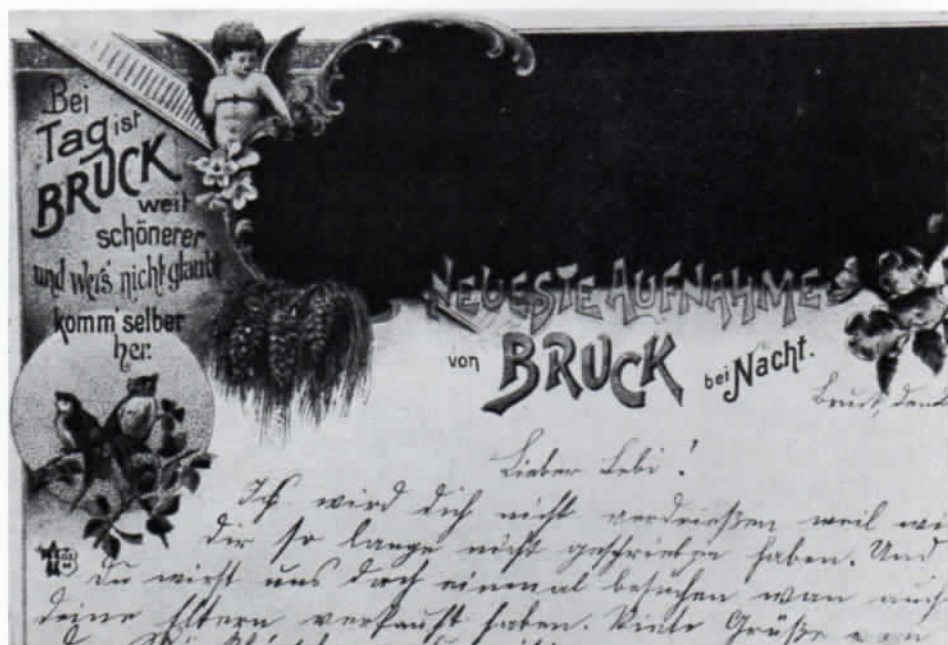 Bei
Tag ist
BRUCK
weit
schönerer
und wer's nicht glaubt
komm' selber
her.
NEUESTE AUFNAHME
von BRUCK bei Nacht.
Bruck, den
Lieber Lebi!
Ich wird dich nicht verdrießen weil wi
dir so lange nicht geschrieben haben. Und
Du wirst uns doch einmal besuchen wan auch
deine Eltern verkauft haben. Viele Grüße von